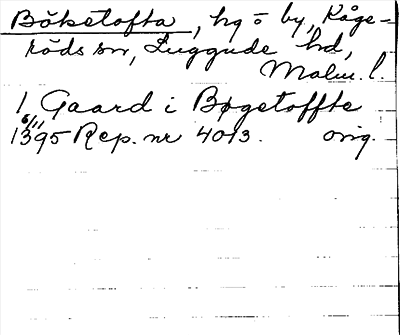 Böketofta, hg o by, Kåge-
röds sn, Luggude hd,
Malm. l.
1 Gaard i Bøgetoffte
6/11
1395 Rep. nr 4013. orig.